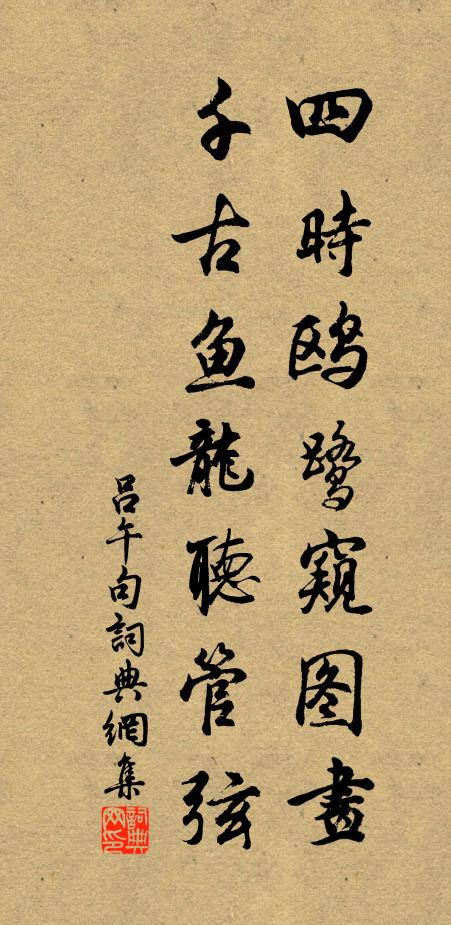 四時鸥鹭窺图畫
千古鱼龍聽管弦
呂午句詞典網集
詞典网印